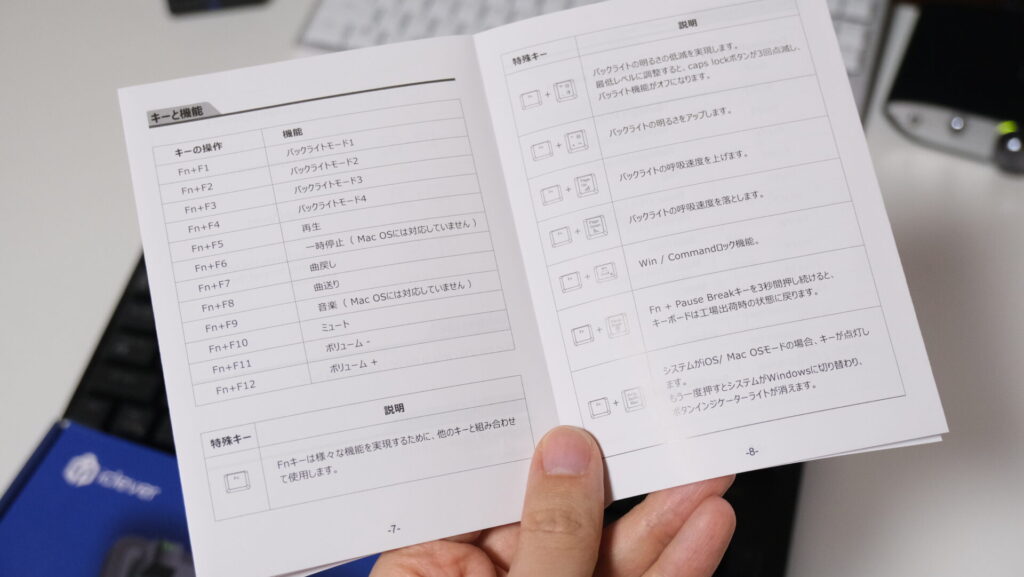 キーと機能
キーの操作 機能
Fn+F1 バックライトモード1
Fn+F2 バックライトモード2
Fn+F3 バックライトモード3
Fn+F4 バックライトモード4
Fn+F5 再生
Fn+F6 一時停止（ Mac OSには対応していません ）
Fn+F7 曲戻し
Fn+F8 曲送り
Fn+F9 音楽（ Mac OSには対応していません ）
Fn+F10 ミュート
Fn+F11 ボリューム -
Fn+F12 ボリューム +
特殊キー 説明
Fn
Fnキーは様々な機能を実現するために、他のキーと組み合わせ
て使用します。
-7-
特殊キー 説明
Fn +
バックライトの明るさの低減を実現します。
最低レベルに調整すると、caps lockボタンが3回点滅し、
バッライト機能がオフになります。
Fn +
バックライトの明るさをアップします。
Fn +
バックライトの呼吸速度を上げます。
Fn +
バックライトの呼吸速度を落とします。
Fn +
Win / Commandロック機能。
Fn +
Fn + Pause Breakキーを3秒間押し続けると、
キーボードは工場出荷時の状態に戻ります。
Fn +
システムがiOS/ Mac OSモードの場合、キーが点灯し
ます。
もう一度押すとシステムがWindowsに切り替わり、
ボタンインジケーターライトが消えます。
-8-
iclever